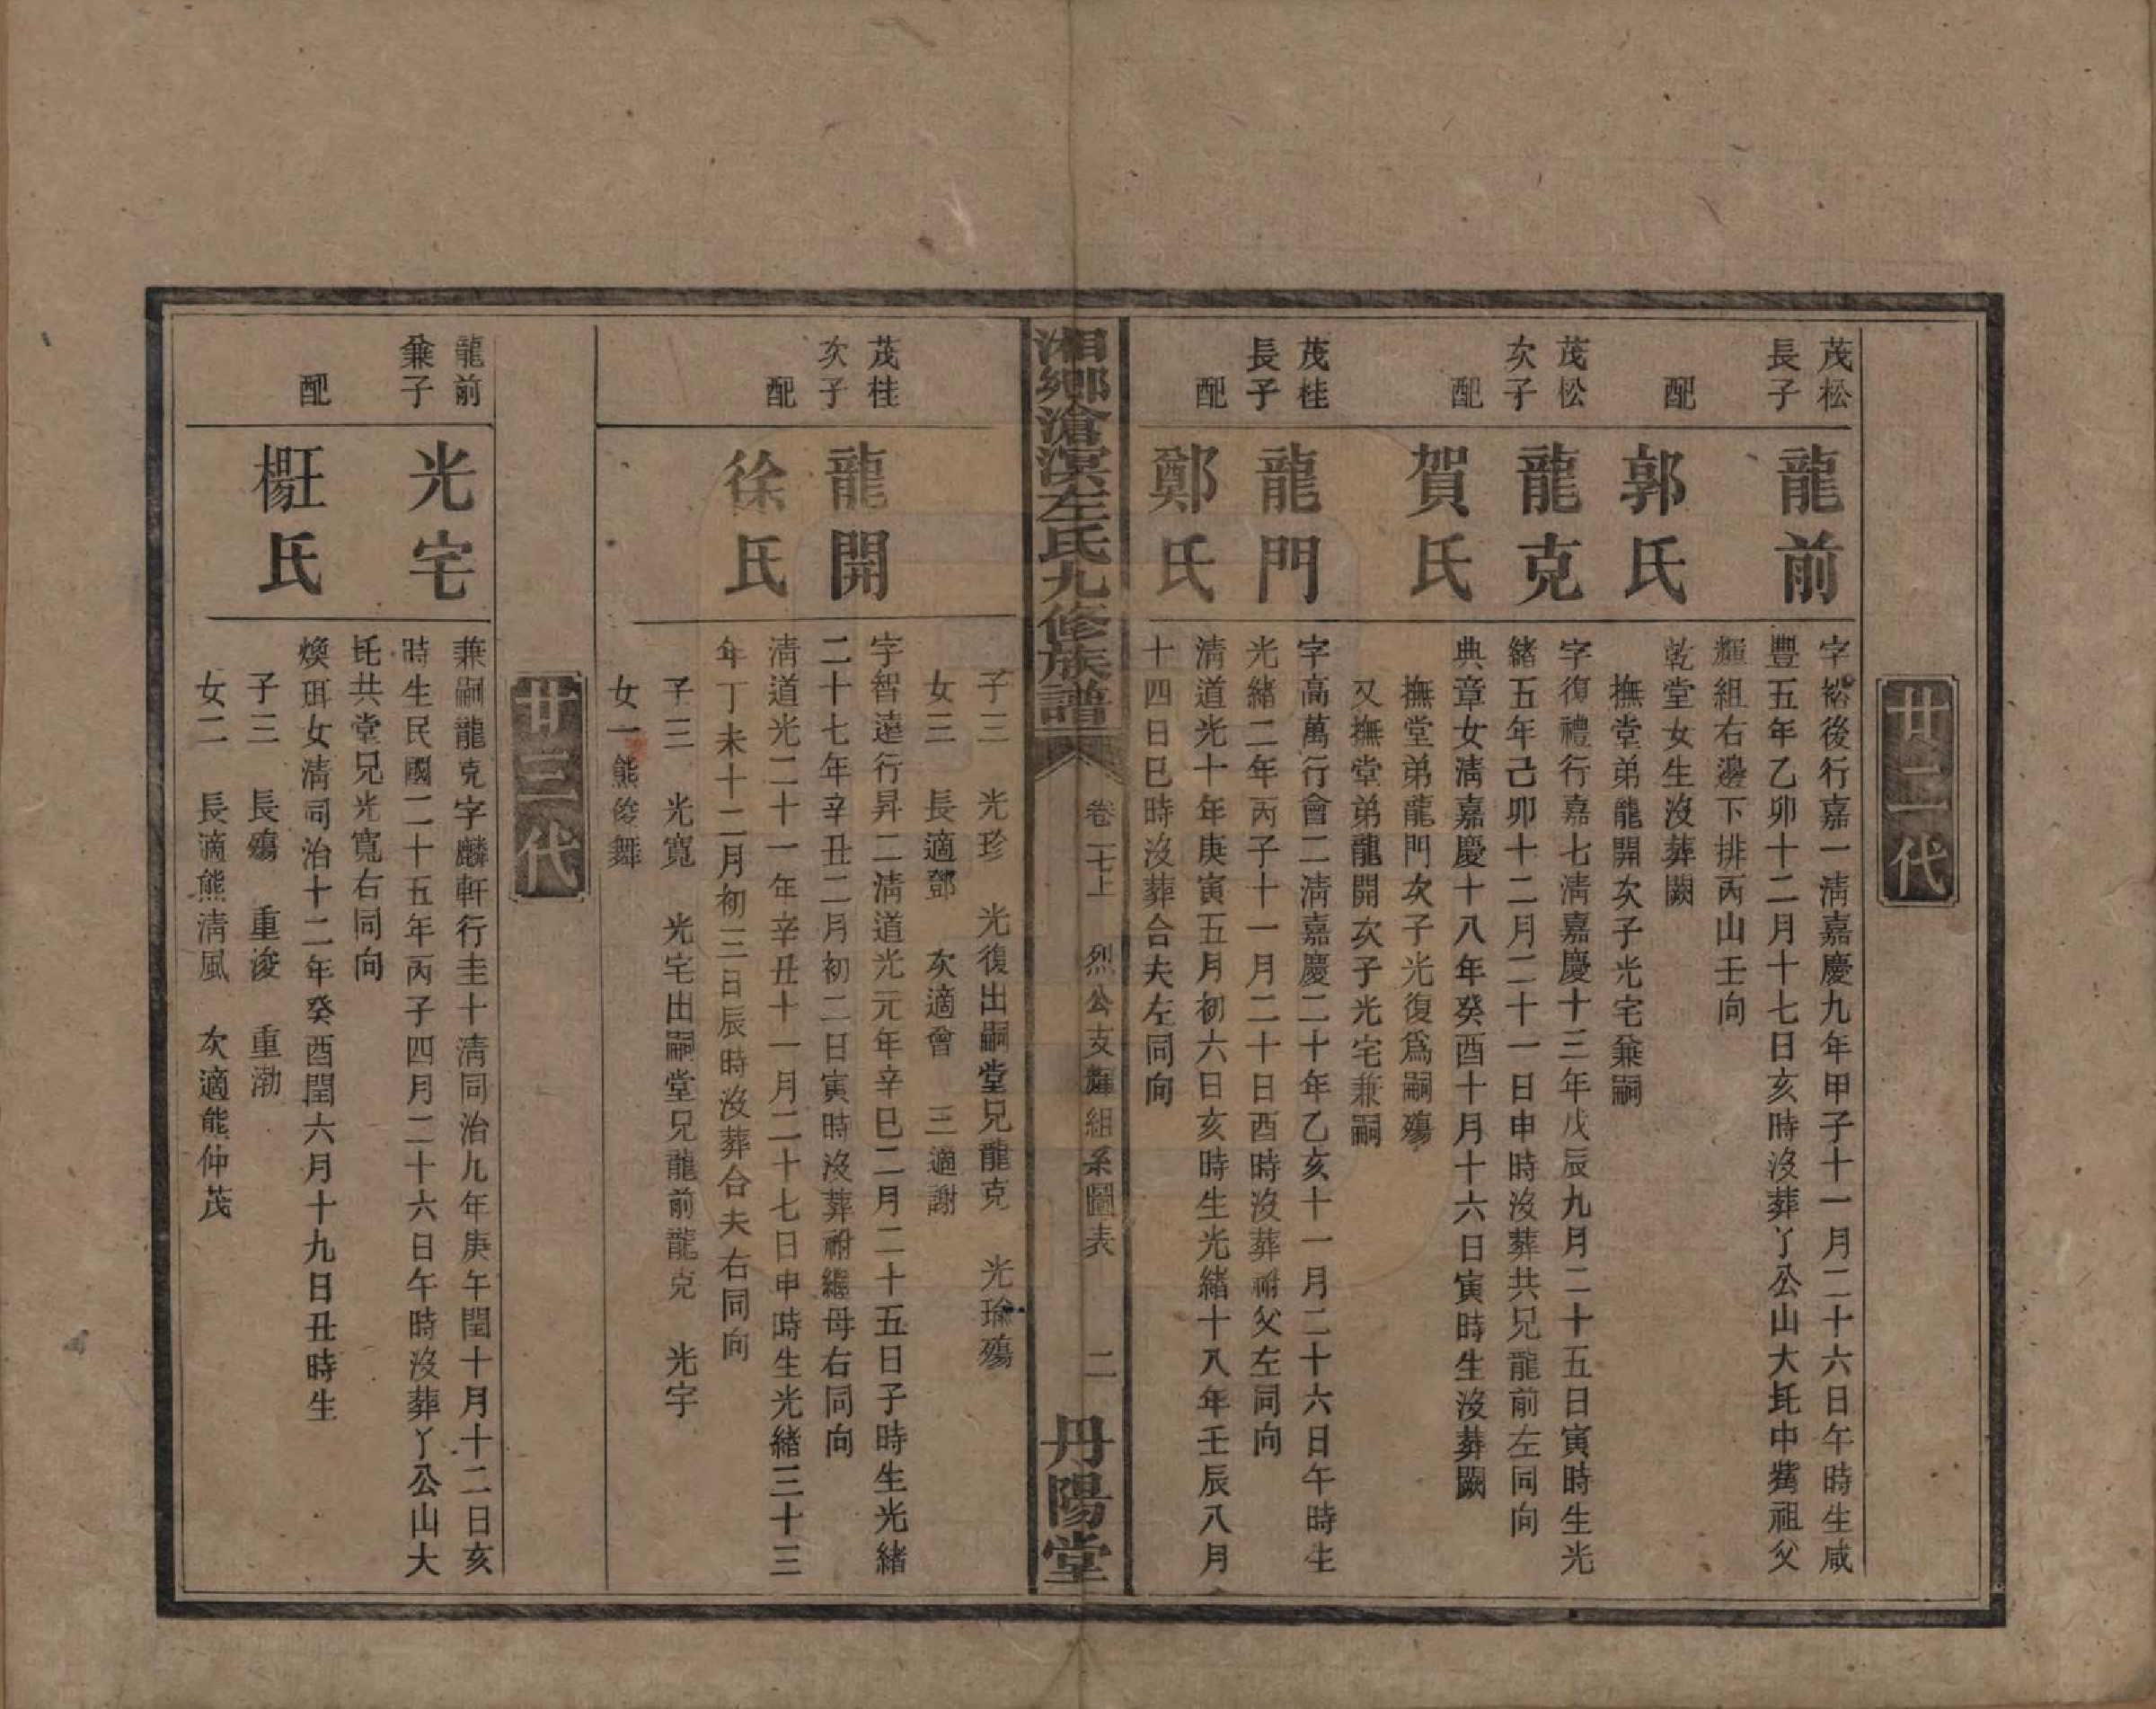 廿二代
茂松
長子
龍前
字裕後行嘉一清嘉慶九年甲子十一月二十六日午時生咸
豐五年乙卯十二月十七日亥時沒葬丫公山大坵中嘴祖父
輝組右邊下排丙山壬向
配
郭氏
乾堂女生沒葬闕
撫堂弟龍開次子光宅兼嗣
茂松
次子
龍克
字復禮行嘉七清嘉慶十三年戊辰九月二十五日寅時生光
緒五年己卯十二月二十一日申時沒葬共兄龍前左同向
配
賀氏
典章女清嘉慶十八年癸酉十月十六日寅時生沒葬闕
撫堂弟龍門次子光復為嗣殤
又撫堂弟龍開次子光宅兼嗣
茂桂
長子
龍門
字高萬行會二清嘉慶二十年乙亥十一月二十六日午時生
光緒二年丙子十一月二十日酉時沒葬祔父左同向
配
鄭氏
清道光十年庚寅五月初六日亥時生光緒十八年壬辰八月
十四日巳時沒葬合夫左同向
湘鄉滄溟左氏九修族譜
卷二七上 烈公支輝組系圖表 二
丹陽堂
子三 光珍 光復出嗣堂兄龍克 光瑜殤
女三 長適鄧 次適曾 三適謝
茂桂
次子
龍開
字智遠行昇二清道光元年辛巳二月二十五日子時生光緒
二十七年辛丑二月初二日寅時沒葬祔繼母右同向
配
徐氏
清道光二十一年辛丑十一月二十七日申時生光緒三十三
年丁未十二月初三日辰時沒葬合夫右同向
子三 光寬 光宅出嗣堂兄龍前龍克 光宇
女一熊俊舞
廿三代
龍前
兼子
光宅
兼嗣龍克字麟軒行圭十清同治九年庚午閏十月十二日亥
時生民國二十五年丙子四月二十六日午時沒葬丫公山大
坵共堂兄光寬右同向
配
王楊氏
煥珥女清同治十二年癸酉閏六月十九日丑時生
子三 長殤 重浚 重渤
女二 長適熊清風 次適熊仲茂